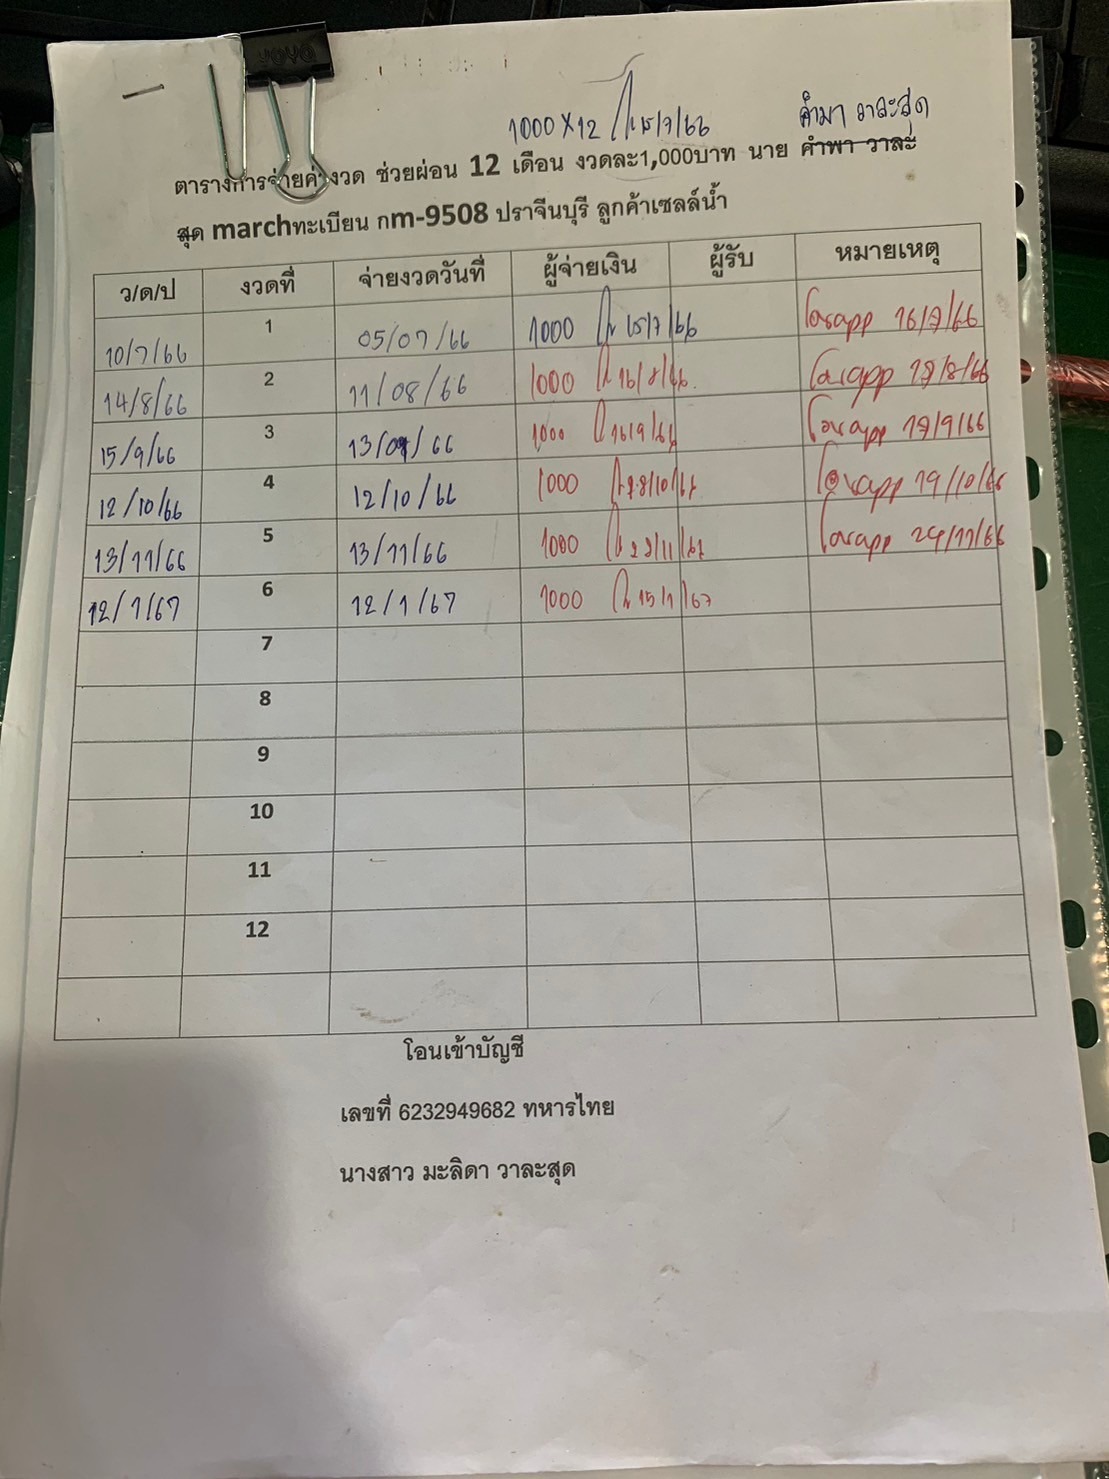 JOYO
1000 x 12 15/7/66 คำมา วาละสุด
ตารางการจ่ายค่างวด ช่วยผ่อน 12 เดือน งวดละ1,000บาท นาย คำพา วาละ
สุด marchทะเบียน กm-9508 ปราจีนบุรี ลูกค้าเซลล์น้ำ
ว/ด/ป งวดที่ จ่ายงวดวันที่ ผู้จ่ายเงิน ผู้รับ หมายเหตุ
10/7/66 1 05/07/66 1000 15/7/66 โอนapp 16/7/66
14/8/66 2 11/08/66 1000 16/8/66 โอนapp 17/8/66
15/9/66 3 13/09/66 1000 16/9/66 โอนapp 17/9/66
12/10/66 4 12/10/66 1000 โอนapp 19/10/66
13/11/66 5 13/11/66 1000 โอนapp 24/11/66
12/1/67 6 12/1/67 1000 15/1/67
7
8
9
10
11
12
โอนเข้าบัญชี
เลขที่ 6232949682 ทหารไทย
นางสาว มะลิดา วาละสุด